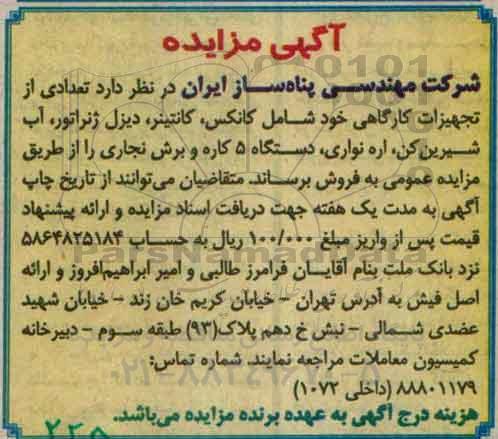 آگهی مزایده
شرکت مهندسی پناه‌ساز ایران در نظر دارد تعدادی از
تجهیزات کارگاهی خود شامل کانکس، کانتینر، دیزل ژنراتور، آب
شیرین‌کن، اره نواری، دستگاه ۵ کاره و برش نجاری را از طریق
مزایده عمومی به فروش برساند. متقاضیان می‌توانند از تاریخ چاپ
آگهی به مدت یک هفته جهت دریافت اسناد مزایده و ارائه پیشنهاد
قیمت پس از واریز مبلغ ۱۰۰/۰۰۰ ریال به حساب ۵۸۶۴۸۲۵۱۸۴
نزد بانک ملت بنام آقایان فرامرز طالبی و امیر ابراهیم‌افروز و ارائه
اصل فیش به آدرس تهران - خیابان کریم خان زند - خیابان شهید
عضدی شمالی - نبش خ دهم پلاک(۹۳) طبقه سوم - دبیرخانه
کمیسیون معاملات مراجعه نمایند. شماره تماس:
۸۸۸۰۱۱۷۹ (داخلی ۱۰۷۲)
هزینه درج آگهی به عهده برنده مزایده می‌باشد.
ParsNamadData